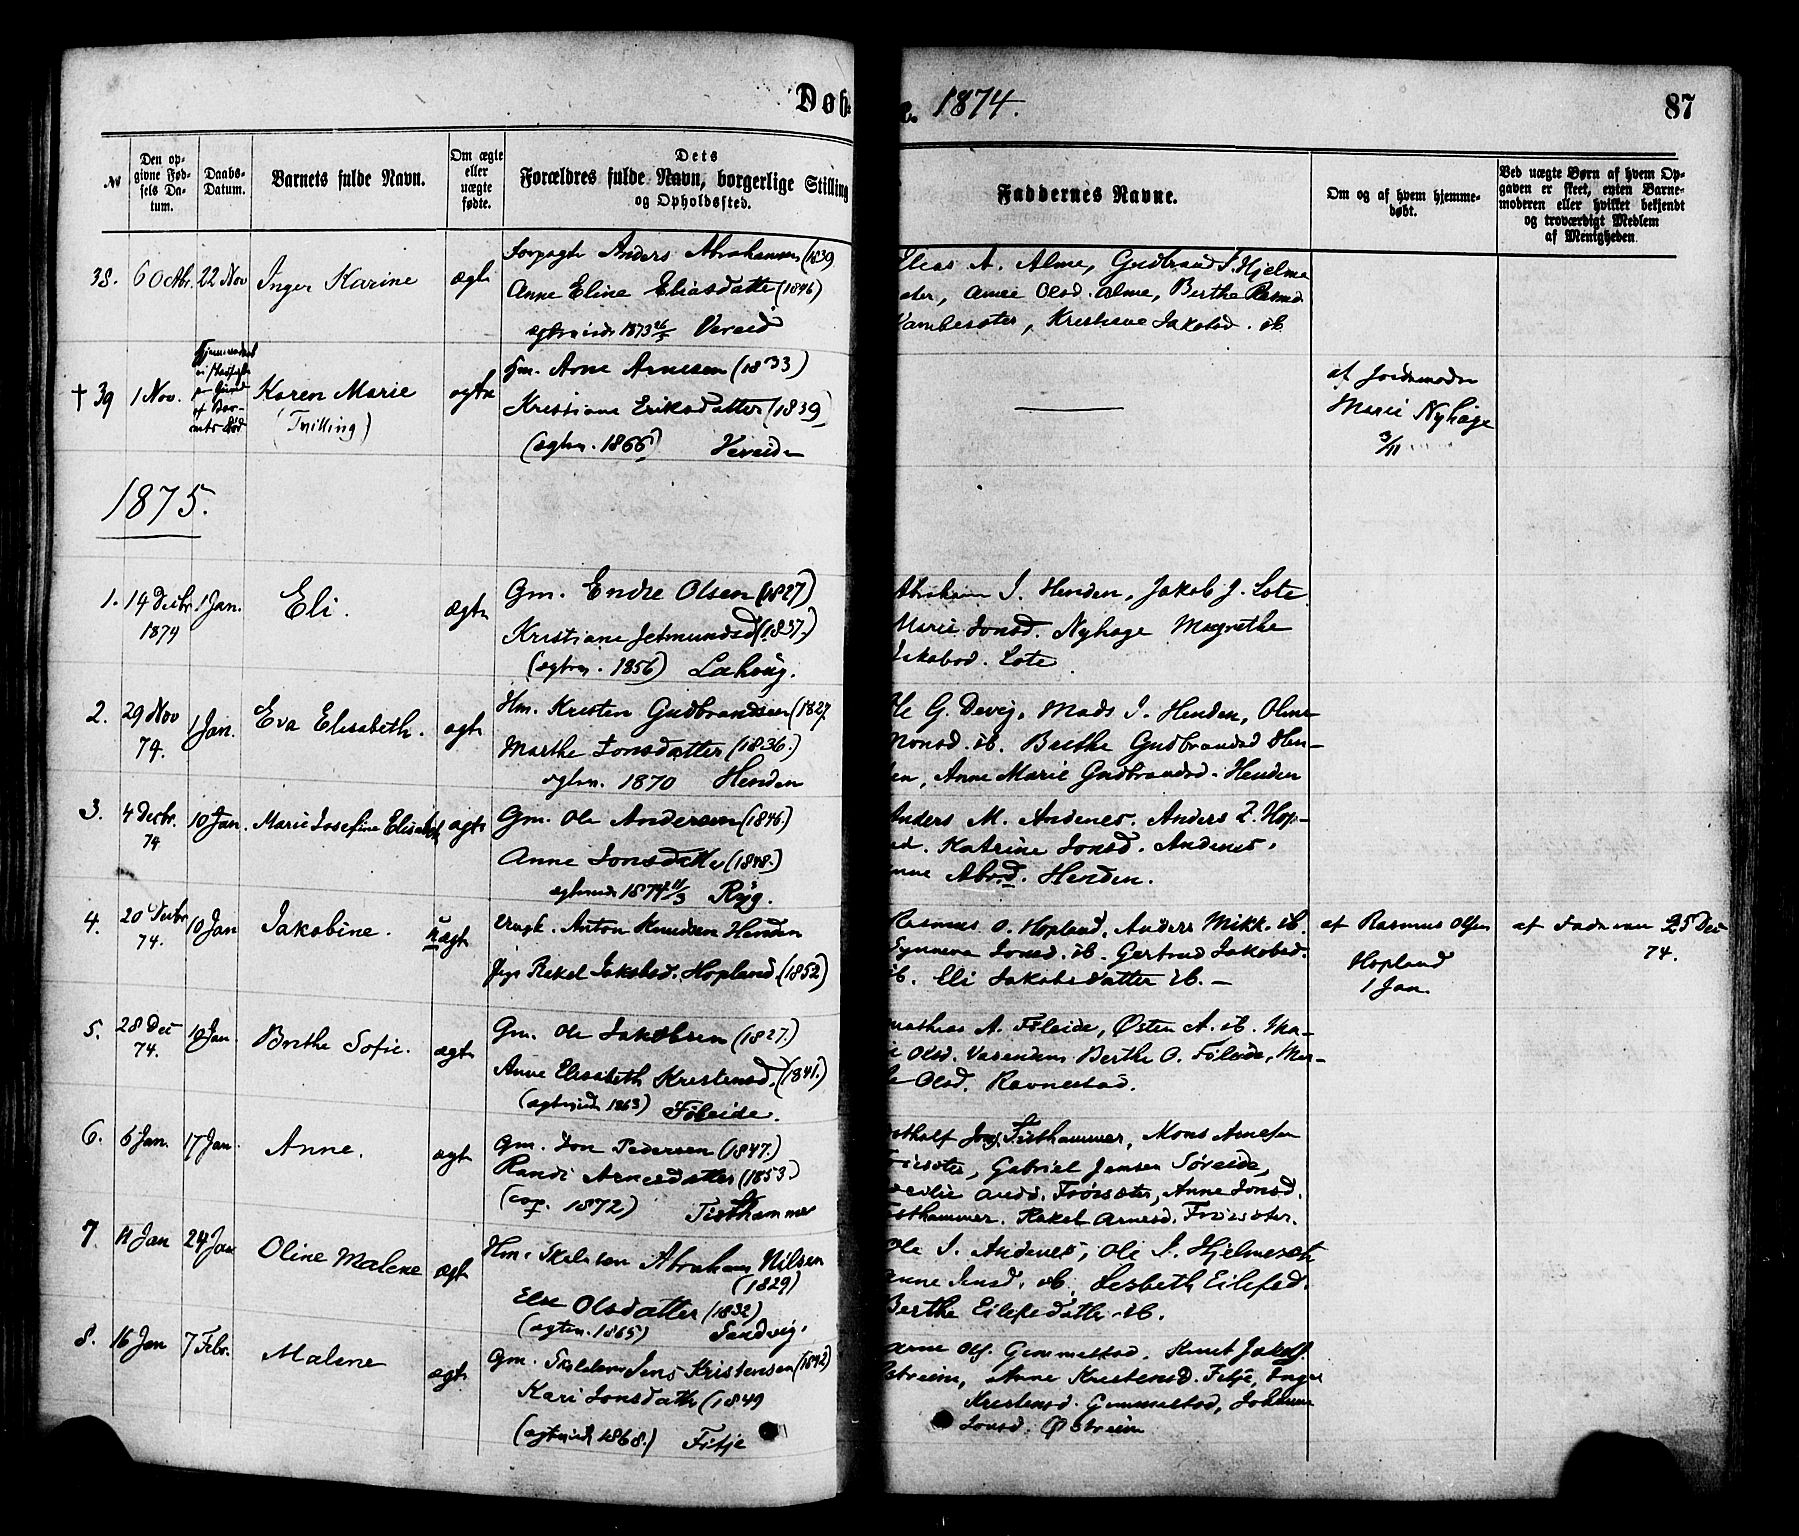 Døb. 1874. 87
№
Den op-
givne Fød-
sels Da-
tum.
Daabs-
Datum.
Barnets fulde Navn.
Om ægte
eller
uægte
fødte.
Dets
Forældres fulde Navn, borgerlige Stilling
og Opholdssted.
Faddernes Navne.
Om og af hvem hjemme-
døbt.
Ved uægte Børn af hvem Op-
gaven er skeet, enten Barne-
moderen eller hvilket bekjendt
og troværdigt Medlem
af Menigheden.
38. 6 Octbr. 22 Nov Inger Karine ægte
Anders Abrahamsen (1839
Anne Eline Eliasdatter (1846)
1873 26/5 Vereid
Elias A. Alme, Gudbrand J. Hjelme
sæter, Anne Olsd. Alme, Berthe Rasmd
Vambesæter, Kristiane Jakobsd. ib
† 39 1 Nov. Karen Marie
(Tvilling)
ægte
Gm. Arne Arnesen (1833)
Kristiane Eriksdatter (1839)
(ægtev. 1866) Vereide
af Jordmoder
Marie Nyhage
3/11
1875.
1. 14 Decbr 1 Jan. Eli. ægte
1874
Gm. Endre Olsen (1827)
Kristiane Jetmundsd (1837.)
(ægtev. 1856) Lothe
Abraham I. Henden, Jakob J. Lote
Marie Jonsd. Nyhage Magrethe
Jakobsd. Lote
2. 29 Nov 1 Jan. Eva Elisabeth. ægte
74.
Hm. Kristen Gudbrandsen (1827
Marthe Jonsdatter (1836.)
ægtev. 1870 Henden
Ole G. Devig, Mads I. Henden, Oline
Monsd. ib. Berthe Gudbrandsd Hen-
den, Anne Marie Gudbrandsd. Henden
3. 4 Decbr. 10 Jan. Marie Josefine Elisabeth ægte
74
Gm. Ole Andersen (1846)
Anne Jonsdatter (1848.)
1874 11/3 Ryg.
Anders M. Andenes. Anders Z. Hop-
land. Katrine Jonsd. Andenes.
Anne Abrd. Henden.
4. 20 Decbr 10 Jan Jakobine. uægte
74.
Ungk. Anton Knudsen Henden
Pige Rakel Jakobsd. Hopland. (1852)
Rasmus O. Hopland. Anders Mikk. ib.
Synneva Jonsd. ib. Gertrud Jakobsd.
ib. Eli Jakobsdatter ib. –
af Rasmus Olsen
Hopland
1 Jan.
af Faderen 25 Dec
74.
5. 28 Dec 10 Jan Brithe Sofie. ægte
74.
Gm. Ole Jakobsen (1827.)
Anne Elisabeth Kristensd. (1841.)
(ægtev. 1863) Føleide.
Mathias A. Føleide, Østen A. ib. Ma-
rie Olsd. Varenden Berthe O. Føleide, Mar-
the Olsd. Ravnestad.
6. 6 Jan. 17 Jan. Anne. ægte
Gm. Jon Pedersen (1847.)
Randi Arnesdatter (1853)
(cop. 1872) Tisthammer
Botholf Jons. Tisthammer, Mons Arnesen
Frøisæter, Gabriel Jensen Søreide,
Cecilie Andd. Frøisæter, Anne Jonsd.
Tisthammer. Rakel Arnesd. Frøisæter.
7. 11 Jan 24 Jan Oline Malene ægte
Hm. Abraham Nilsen
(1829)
Else Olsdatter (1832)
(ægtev. 1865) Sandvig.
Ole I. Andenes, Ole J. Hjelmesæt
Anne Jensd. ib. Lisbeth Eilefsd.
Berthe Eilefsdatter ib.
8. 16 Jan 7 Febr. Malene ægte
Gm. Jens Kristensen (1842)
Kari Jonsdatter (1849
(ægtev. 1868.) Fitje
Arne Ols. Gemmestad. Knut Jakobs.
Østreim, Anne Kristensd. Fitje, Inger
Kristensd. Gemmestad, Johanne
Jonsd. Østreim